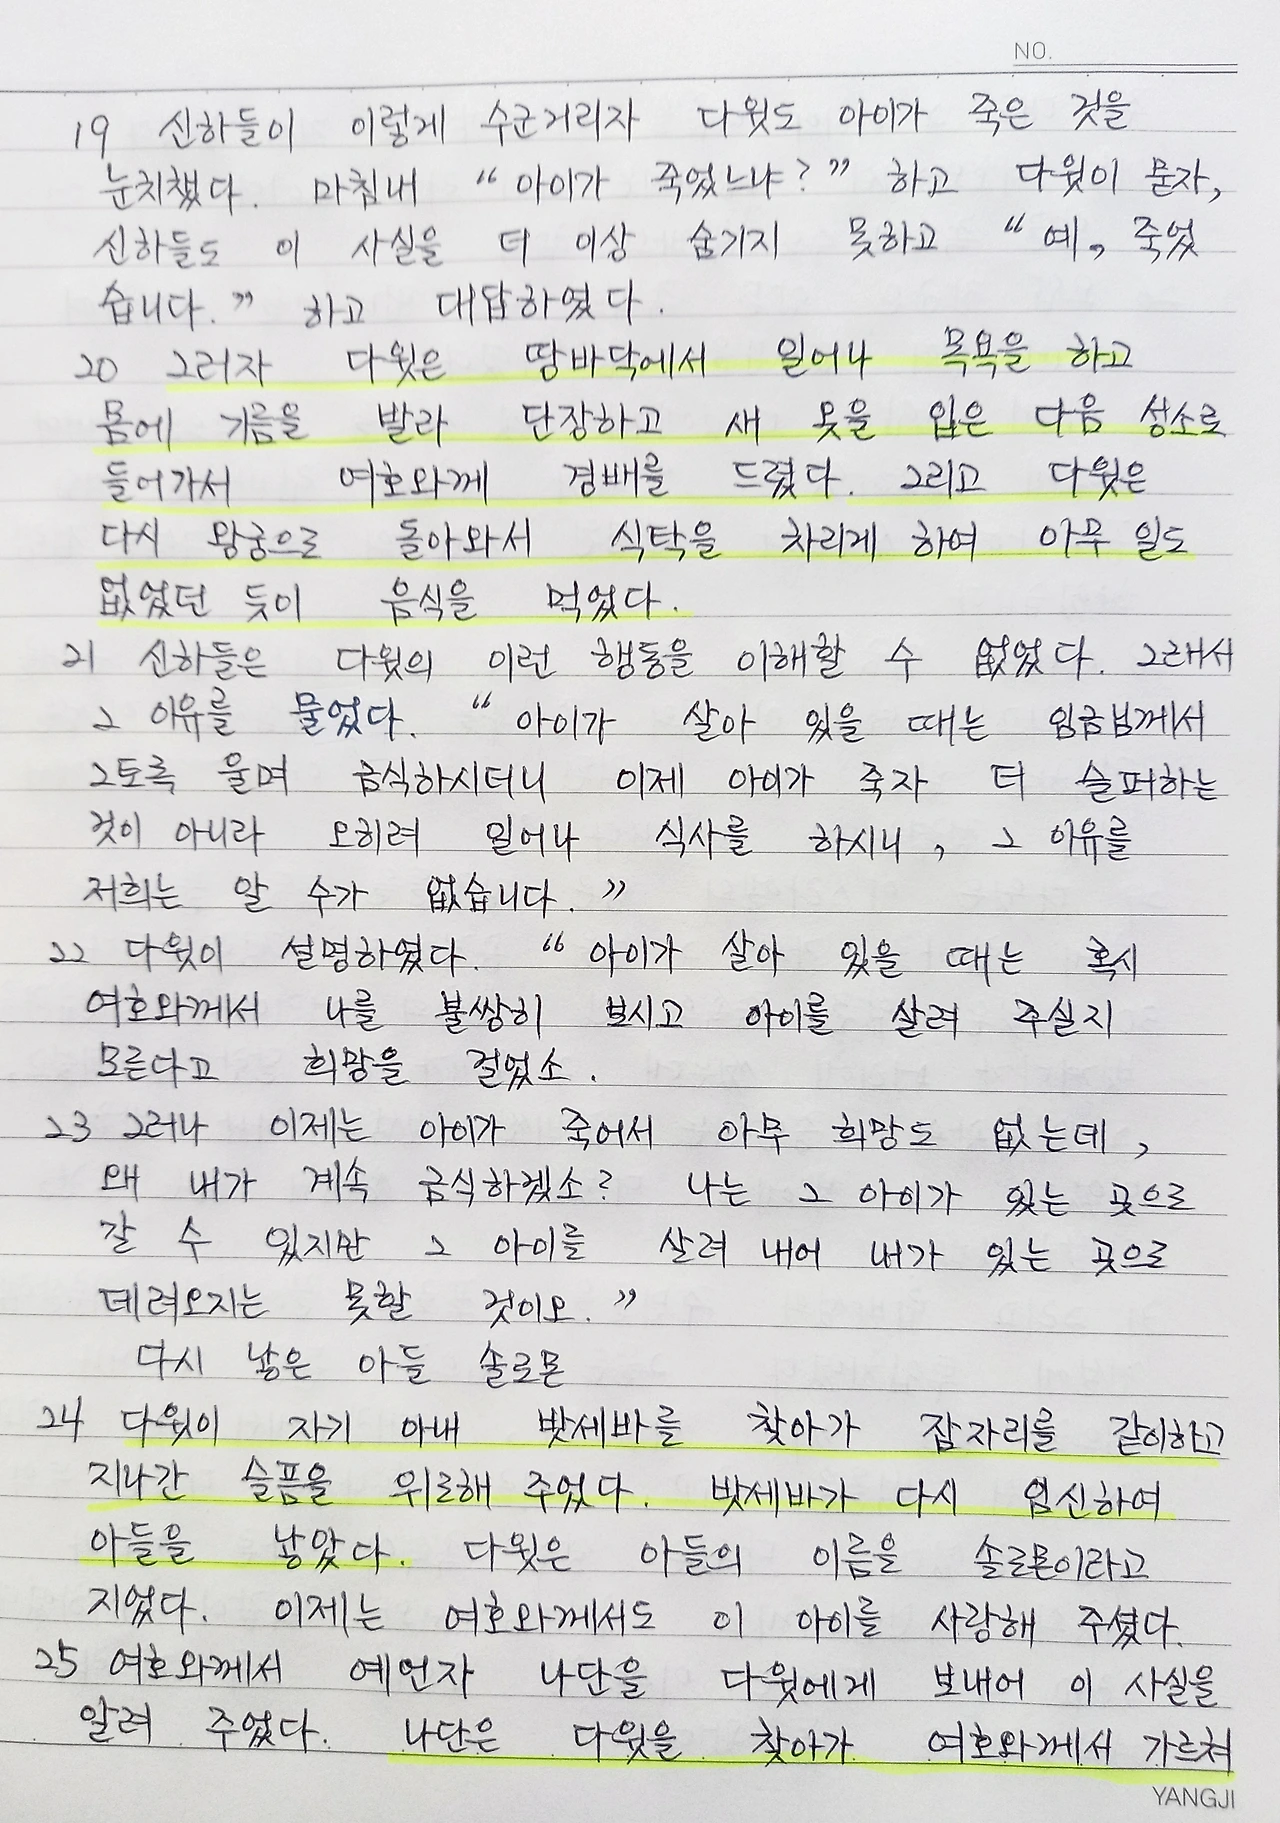 NO.
19 신하들이 이렇게 수군거리자 다윗도 아이가 죽은 것을
눈치챘다. 마침내 “아이가 죽었느냐?” 하고 다윗이 묻자,
신하들도 이 사실을 더 이상 숨기지 못하고 “예, 죽었
습니다.” 하고 대답하였다.
20 그러자 다윗은 땅바닥에서 일어나 목욕을 하고
몸에 기름을 발라 단장하고 새 옷을 입은 다음 성소로
들어가서 여호와께 경배를 드렸다. 그리고 다윗은
다시 왕궁으로 돌아와서 식탁을 차리게 하여 아무 일도
없었던 듯이 음식을 먹었다.
21 신하들은 다윗의 이런 행동을 이해할 수 없었다. 그래서
그 이유를 물었다. “아이가 살아 있을 때는 임금님께서
그토록 울며 금식하시더니 이제 아이가 죽자 더 슬퍼하는
것이 아니라 오히려 일어나 식사를 하시니, 그 이유를
저희는 알 수가 없습니다.”
22 다윗이 설명하였다. “아이가 살아 있을 때는 혹시
여호와께서 나를 불쌍히 보시고 아이를 살려 주실지
모른다고 희망을 걸었소.
23 그러나 이제는 아이가 죽어서 아무 희망도 없는데,
왜 내가 계속 금식하겠소? 나는 그 아이가 있는 곳으로
갈 수 있지만 그 아이를 살려 내어 내가 있는 곳으로
데려오지는 못할 것이오.”
다시 낳은 아들 솔로몬
24 다윗이 자기 아내 밧세바를 찾아가 잠자리를 같이하고
지나간 슬픔을 위로해 주었다. 밧세바가 다시 임신하여
아들을 낳았다. 다윗은 아들의 이름을 솔로몬이라고
지었다. 이제는 여호와께서도 이 아이를 사랑해 주셨다.
25 여호와께서 예언자 나단을 다윗에게 보내어 이 사실을
알려 주었다. 나단은 다윗을 찾아가 여호와께서 가르쳐
YANGJI